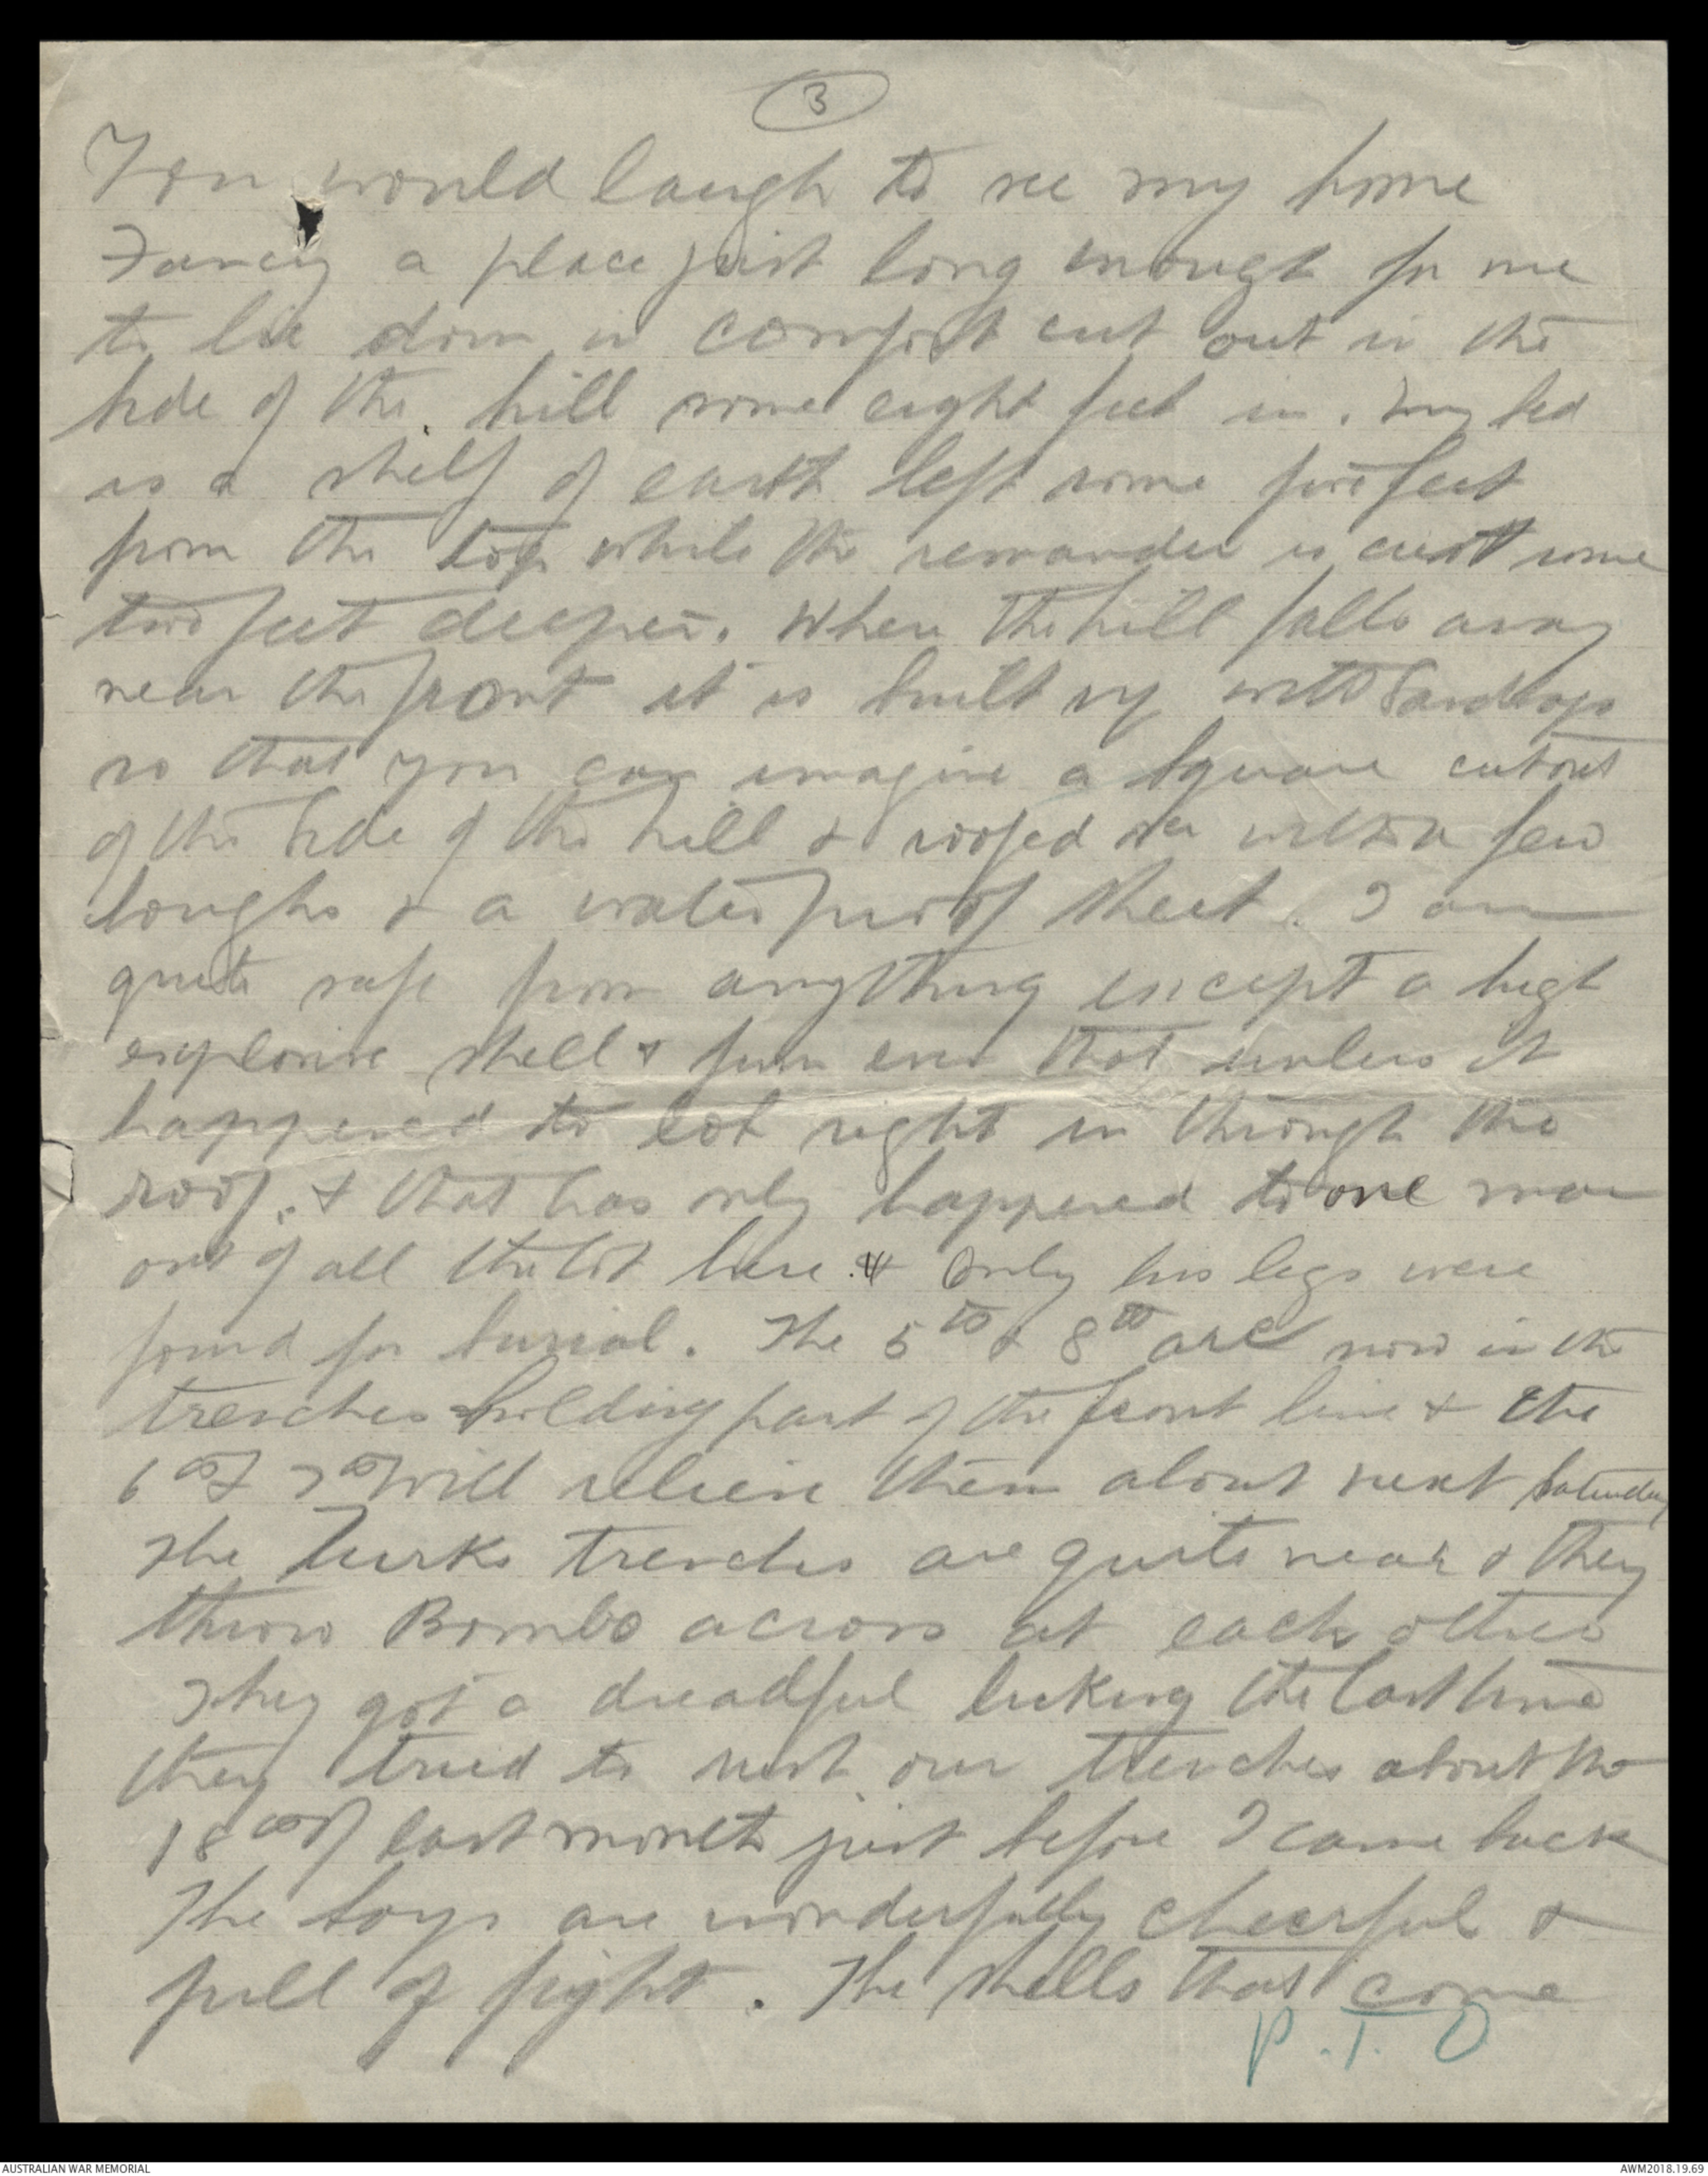 3
You would laugh to see my home
Fancy a place just long enough for me
to lie down in comfort cut out in the
side of the hill some eight feet in. My bed
is a shelf of earth left some feet
from the top while the remainder is cut some
two feet deeper. Where the hill falls away
near the front it is built up with Sandbags
so that you can imagine a square cut out
of the side of the hill & roofed over with a few
boughs & a waterproof sheet. I am
quite safe from anything except a high
explosive shell & from even that unless it
happened to lob right in through the
roof. & that has only happened to one man
out of all the lot here & only his legs were
found for burial. The 5th & 8th are now in the
trenches holding part of the front line & the
6th & 7th will relieve them about next Saturday
The Turks trenches are quite near & they
throw Bombs across at each other
They got a dreadful licking the last time
they tried to rush our trenches about the
18th of last month just before I came back
The boys are wonderfully cheerful &
full of fight. The shells that come
P.T.O
AUSTRALIAN WAR MEMORIAL
AWM2018.19.69